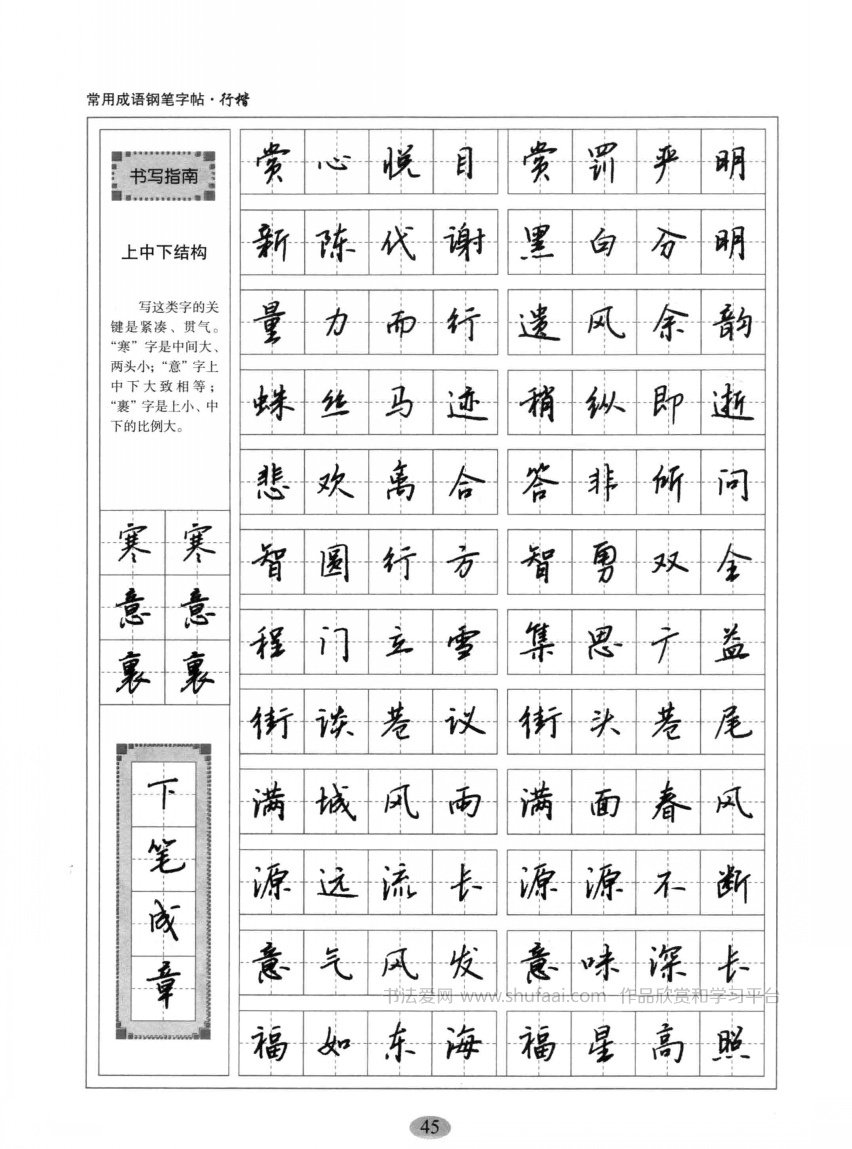 常用成语钢笔字帖·行楷
书写指南
上中下结构
写这类字的关
键是紧凑、贯气。
“寒”字是中间大、
两头小；“意”字上
中下大致相等；
“裹”字是上小、中
下的比例大。
寒 寒
意 意
裹 裹
下
笔
成
章
赏心悦目 赏罚严明
新陈代谢 黑白分明
量力而行 遗风余韵
蛛丝马迹 稍纵即逝
悲欢离合 答非所问
智圆行方 智勇双全
程门立雪 集思广益
街谈巷议 街头巷尾
满城风雨 满面春风
源远流长 源源不断
意气风发 意味深长
书法爱网 www.shufaai.com 作品欣赏和学习平台
福如东海 福星高照
45